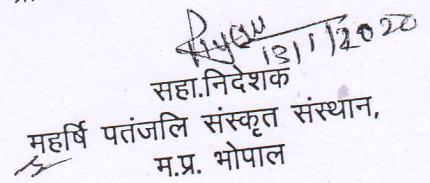 13/1/2020
सहा.निदेशक
महर्षि पतंजलि संस्कृत संस्थान,
म.प्र. भोपाल